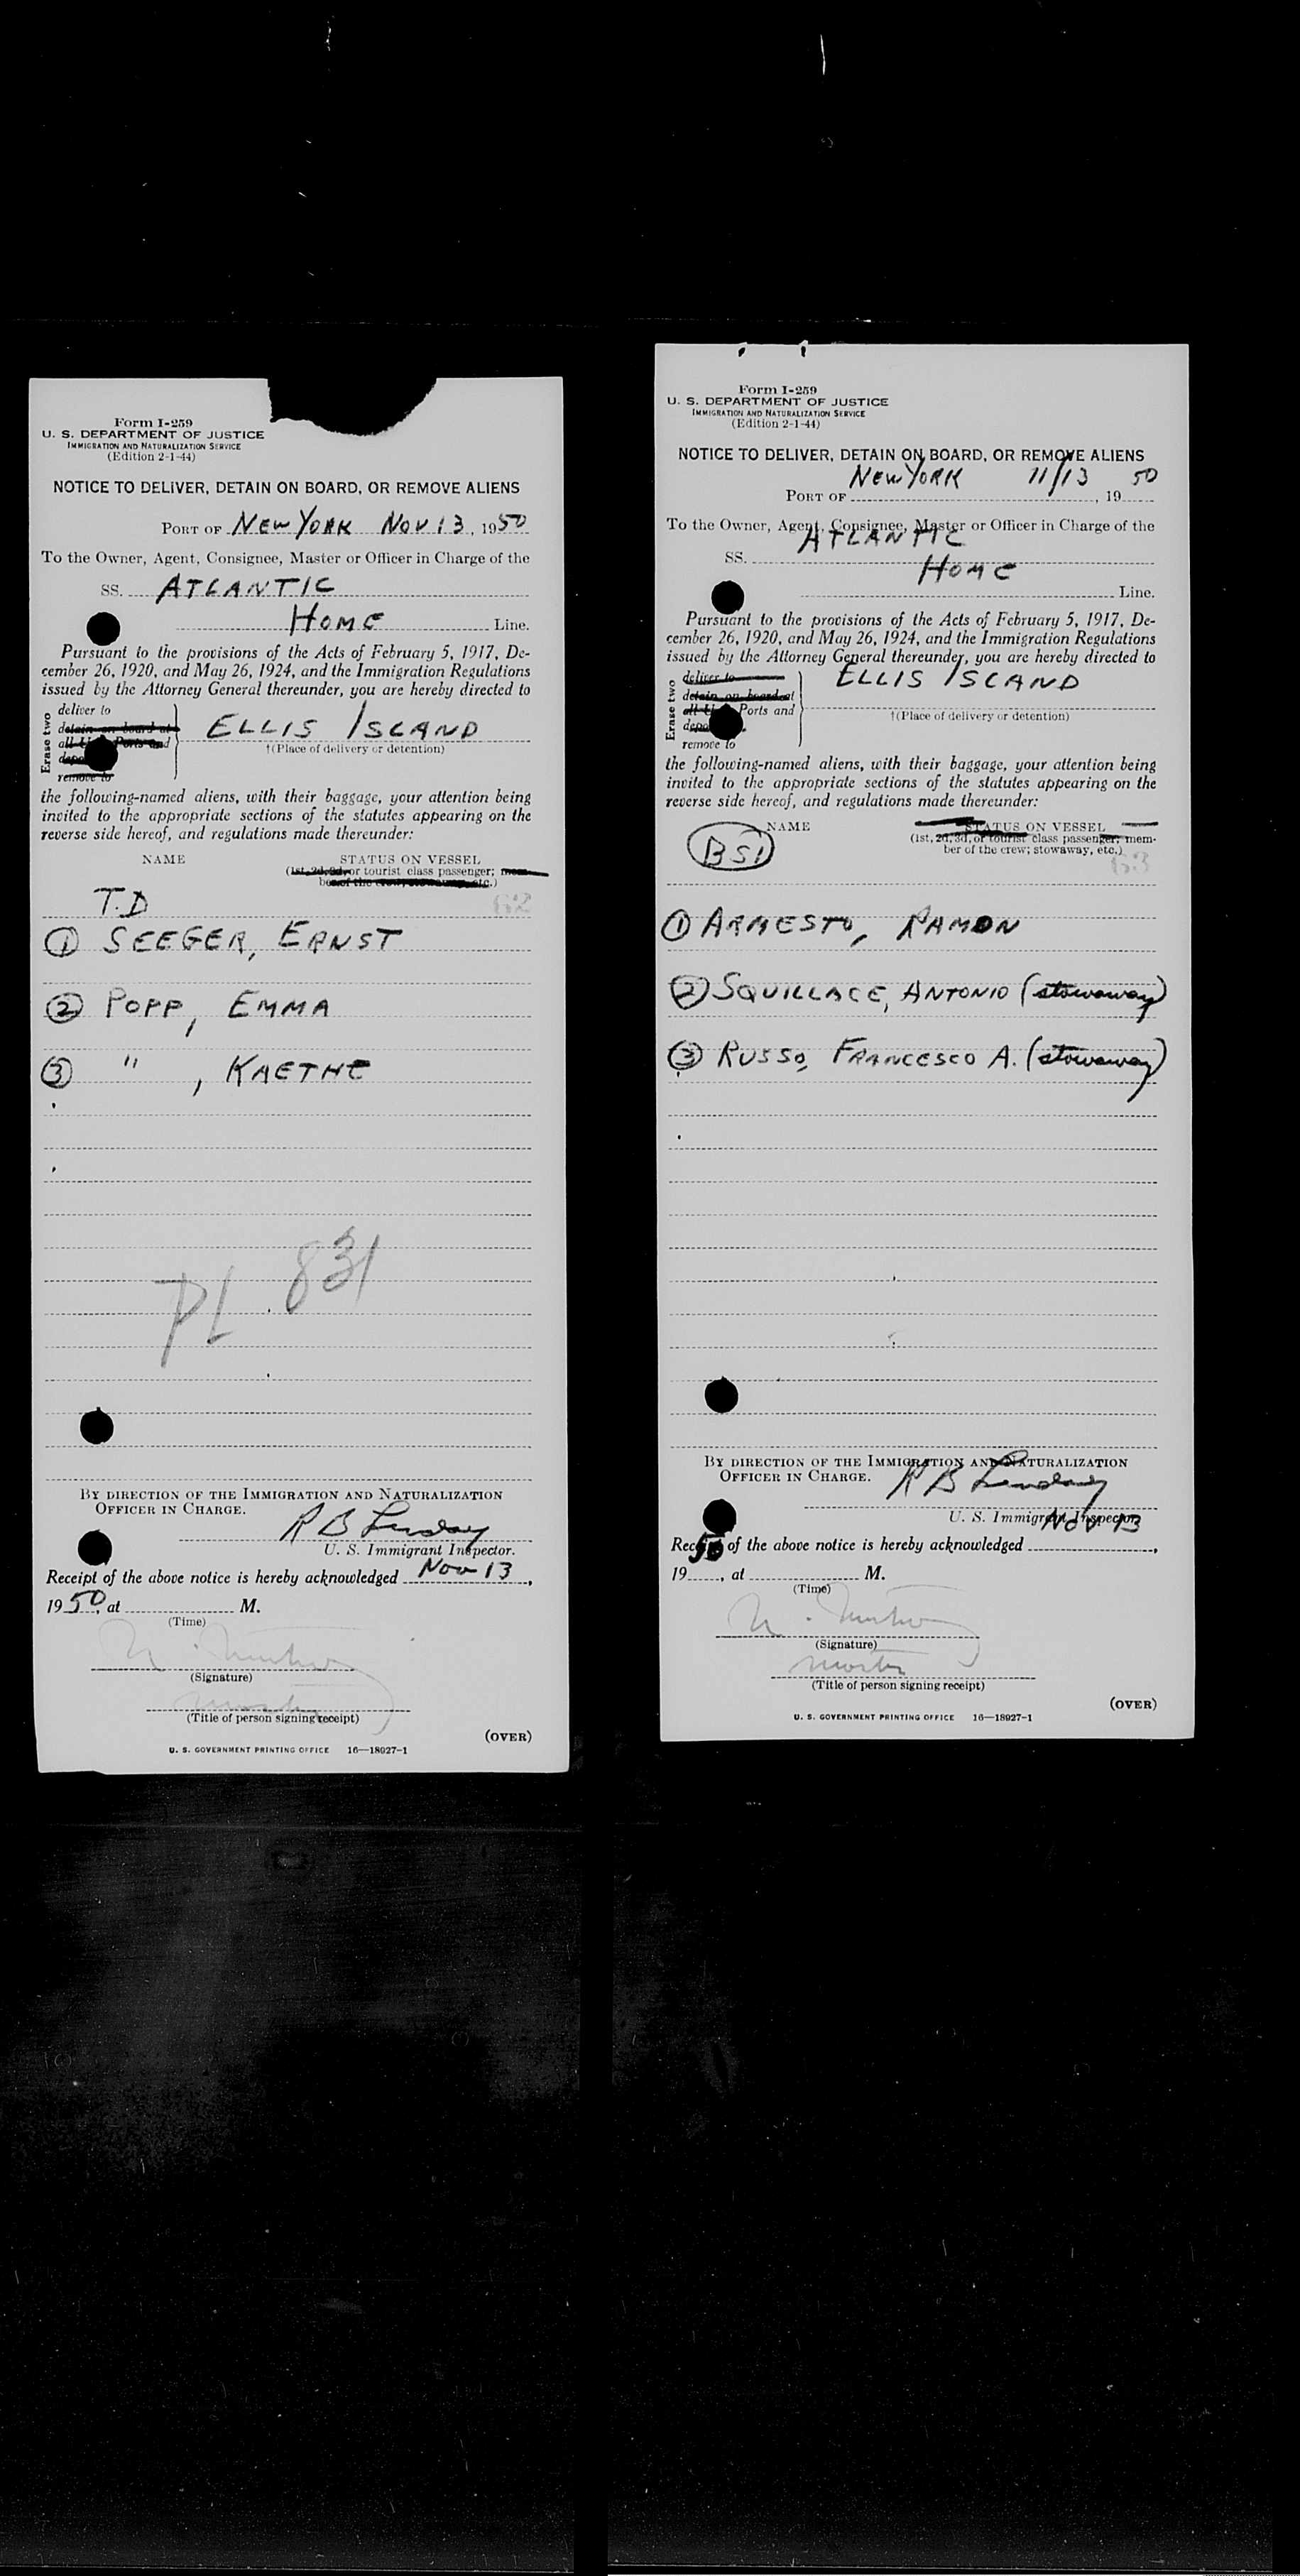 Form I-259
U. S. DEPARTMENT OF JUSTICE
IMMIGRATION AND NATURALIZATION SERVICE
(Edition 2-1-44)
NOTICE TO DELIVER, DETAIN ON BOARD, OR REMOVE ALIENS
PORT OF NEW YORK NOV 13, 1950
To the Owner, Agent, Consignee, Master or Officer in Charge of the
SS. ATLANTIC
HOME Line.
Pursuant to the provisions of the Acts of February 5, 1917, De-
cember 26, 1920, and May 26, 1924, and the Immigration Regulations
issued by the Attorney General thereunder, you are hereby directed to
Erase two
deliver to
detain on board at
all Ports and
remove to
ELLIS ISLAND
†(Place of delivery or detention)
the following-named aliens, with their baggage, your attention being
invited to the appropriate sections of the statutes appearing on the
reverse side hereof, and regulations made thereunder:
NAME STATUS ON VESSEL
(1st, 2d, 3d, or tourist class passenger; mem-
ber of the crew; etc.)
T.D 62
① SEEGER, ERNST
② POPP, EMMA
③ ", KAETHE
PL 831
BY DIRECTION OF THE IMMIGRATION AND NATURALIZATION
OFFICER IN CHARGE.
R B Lindsay
U. S. Immigrant Inspector.
Receipt of the above notice is hereby acknowledged Nov 13,
1950, at M.
(Time)
(Signature)
(Title of person signing receipt)
(OVER)
U. S. GOVERNMENT PRINTING OFFICE 16—18027-1
Form I-259
U. S. DEPARTMENT OF JUSTICE
IMMIGRATION AND NATURALIZATION SERVICE
(Edition 2-1-44)
NOTICE TO DELIVER, DETAIN ON BOARD, OR REMOVE ALIENS
PORT OF NEW YORK 11/13, 1950
To the Owner, Agent, Consignee, Master or Officer in Charge of the
SS. ATLANTIC
HOME Line.
Pursuant to the provisions of the Acts of February 5, 1917, De-
cember 26, 1920, and May 26, 1924, and the Immigration Regulations
issued by the Attorney General thereunder, you are hereby directed to
Erase two
deliver to
detain on board at
all Ports and
remove to
ELLIS ISLAND
†(Place of delivery or detention)
the following-named aliens, with their baggage, your attention being
invited to the appropriate sections of the statutes appearing on the
reverse side hereof, and regulations made thereunder:
NAME STATUS ON VESSEL
BSI (1st, 2d, 3d, or tourist class passenger; mem-
ber of the crew; stowaway, etc.)
63
① ARMESTO, RAMON
② SQUILLACE, ANTONIO (stowaway)
③ RUSSO, FRANCESCO A. (stowaway)
BY DIRECTION OF THE IMMIGRATION AND NATURALIZATION
OFFICER IN CHARGE.
R B Lindsay
U. S. Immigrant Inspector.
Receipt of the above notice is hereby acknowledged Nov 13,
1950, at M.
(Time)
(Signature)
master
(Title of person signing receipt)
(OVER)
U. S. GOVERNMENT PRINTING OFFICE 16—18027-1